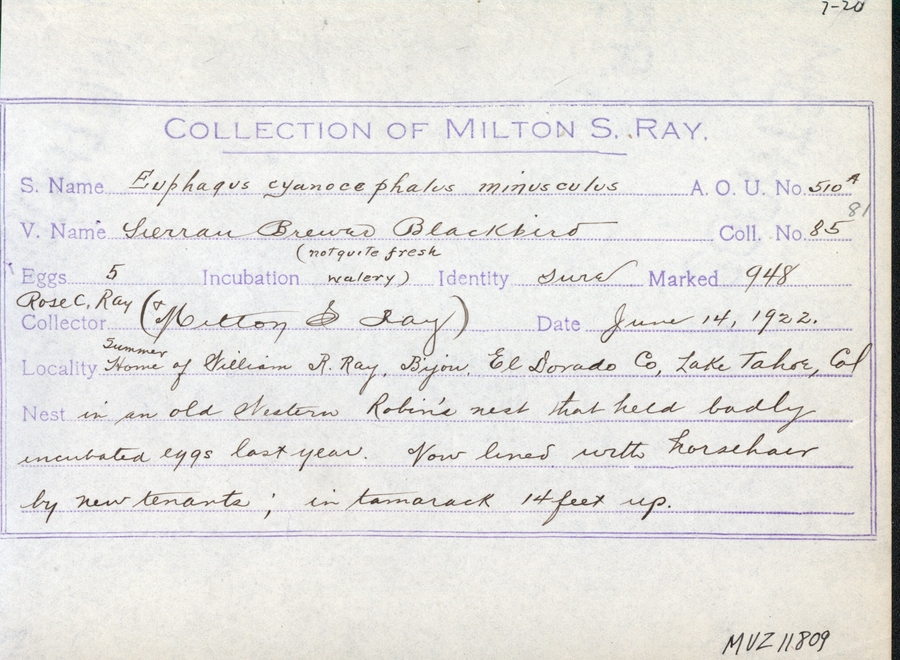 7-20
COLLECTION OF MILTON S. RAY.
S. Name Euphagus cyanocephalus minusculus A. O. U. No. 510 A
81
V. Name Sierran Brewer Blackbird Coll. No. 85
(not quite fresh
Eggs 5 Incubation watery) Identity sure Marked 948
Rose C. Ray
Collector (& Milton S Ray) Date June 14, 1922.
Summer
Locality Home of William R. Ray, Bijou, El Dorado Co, Lake Tahoe, Cal
Nest in an old Western Robin's nest that held badly
incubated eggs last year. Now lined with horsehair
by new tenants; in tamarack 14 feet up.
MVZ 11809